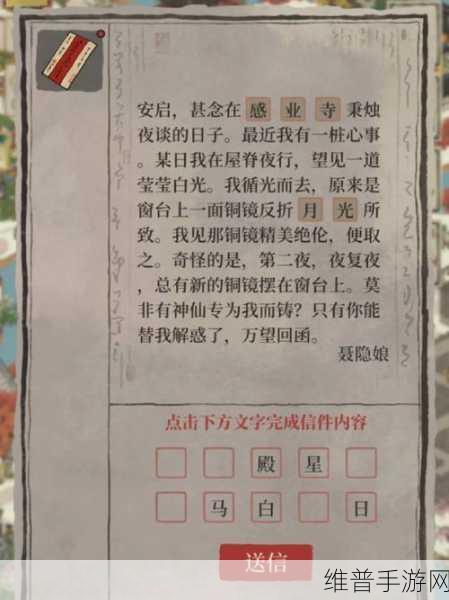 安启，甚念在感业寺秉烛
夜谈的日子。最近我有一桩心事
。某日我在屋脊夜行，望见一道
莹莹白光。我循光而去，原来是
窗台上一面铜镜反折月光所
致。我见那铜镜精美绝伦，便取
之。奇怪的是，第二夜，夜复夜
，总有新的铜镜摆在窗台上。莫
非有神仙专为我而铸？只有你能
替我解惑了，万望回函。
聂隐娘
点击下方文字完成信件内容
殿星
马白日
送信
维普手游网